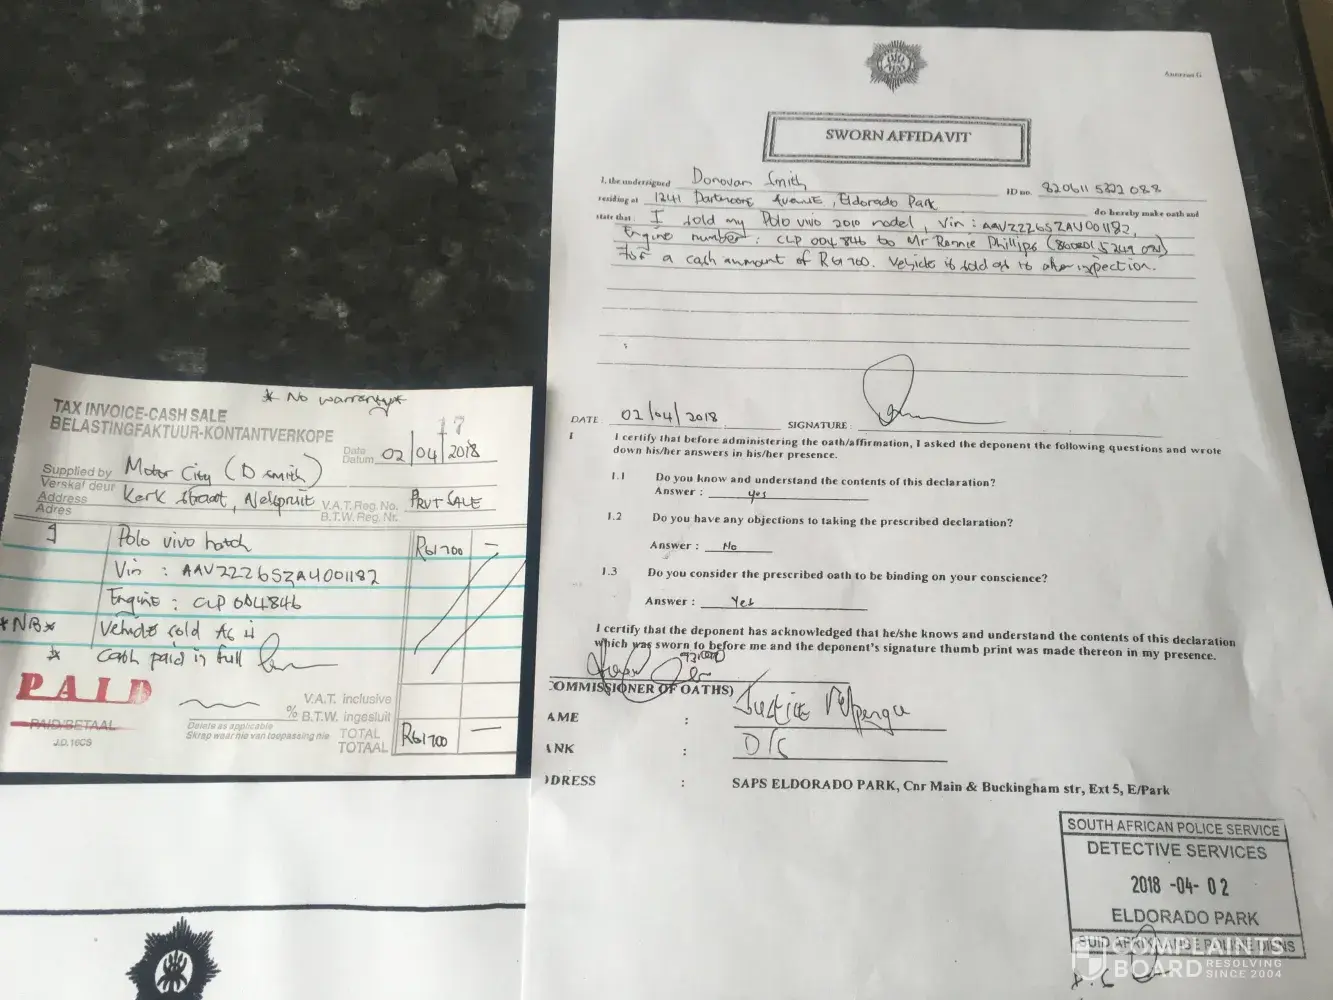 * No warranty*
TAX INVOICE-CASH SALE
BELASTINGFAKTUUR-KONTANTVERKOPE
17
Date
Datum 02/04/2018
Supplied by Motor City (D Smith)
Verskaf deur
Address Kerk straat, Nelspruit
Adres
V.A.T. Reg. No. PRVT SALE
B.T.W. Reg. Nr.
Polo vivo hatch R61700 –
Vin : AAVZZZ6SZAU001182
Engine : CLP 004846
*NB* Vehicle sold As is
* Cash paid in full
PAID
PAID/BETAAL
J.D.16CS
Delete as applicable
Skrap waar nie van toepassing nie
V.A.T. inclusive
% B.T.W. ingesluit
TOTAL
TOTAAL R61700 –
Annexure G
SWORN AFFIDAVIT
I, the undersigned Donovan Smith ID no. 820611 5222 088
residing at 1241 Avenue, Eldorado Park do hereby make oath and
state that : I sold my Polo vivo 2010 model, Vin : AAVZZZ6SZAU001182,
Engine number : CLP 004846 to Mr Ronnie Phillips
for a cash ammount of R61700. Vehicle is sold as is after inspection.
DATE 02/04/2018 SIGNATURE :
I I certify that before administering the oath/affirmation, I asked the deponent the following questions and wrote
down his/her answers in his/her presence.
1.1 Do you know and understand the contents of this declaration?
Answer : yes
1.2 Do you have any objections to taking the prescribed declaration?
Answer : No
1.3 Do you consider the prescribed oath to be binding on your conscience?
Answer : Yes
I certify that the deponent has acknowledged that he/she knows and understand the contents of this declaration
which was sworn to before me and the deponent's signature thumb print was made thereon in my presence.
COMMISSIONER OF OATHS)
AME : Justice
ANK : D/C
DDRESS : SAPS ELDORADO PARK, Cnr Main & Buckingham str, Ext 5, E/Park
SOUTH AFRICAN POLICE SERVICE
DETECTIVE SERVICES
2018 -04- 02
ELDORADO PARK
COMPLAINTS
BOARD RESOLVING
SINCE 2004